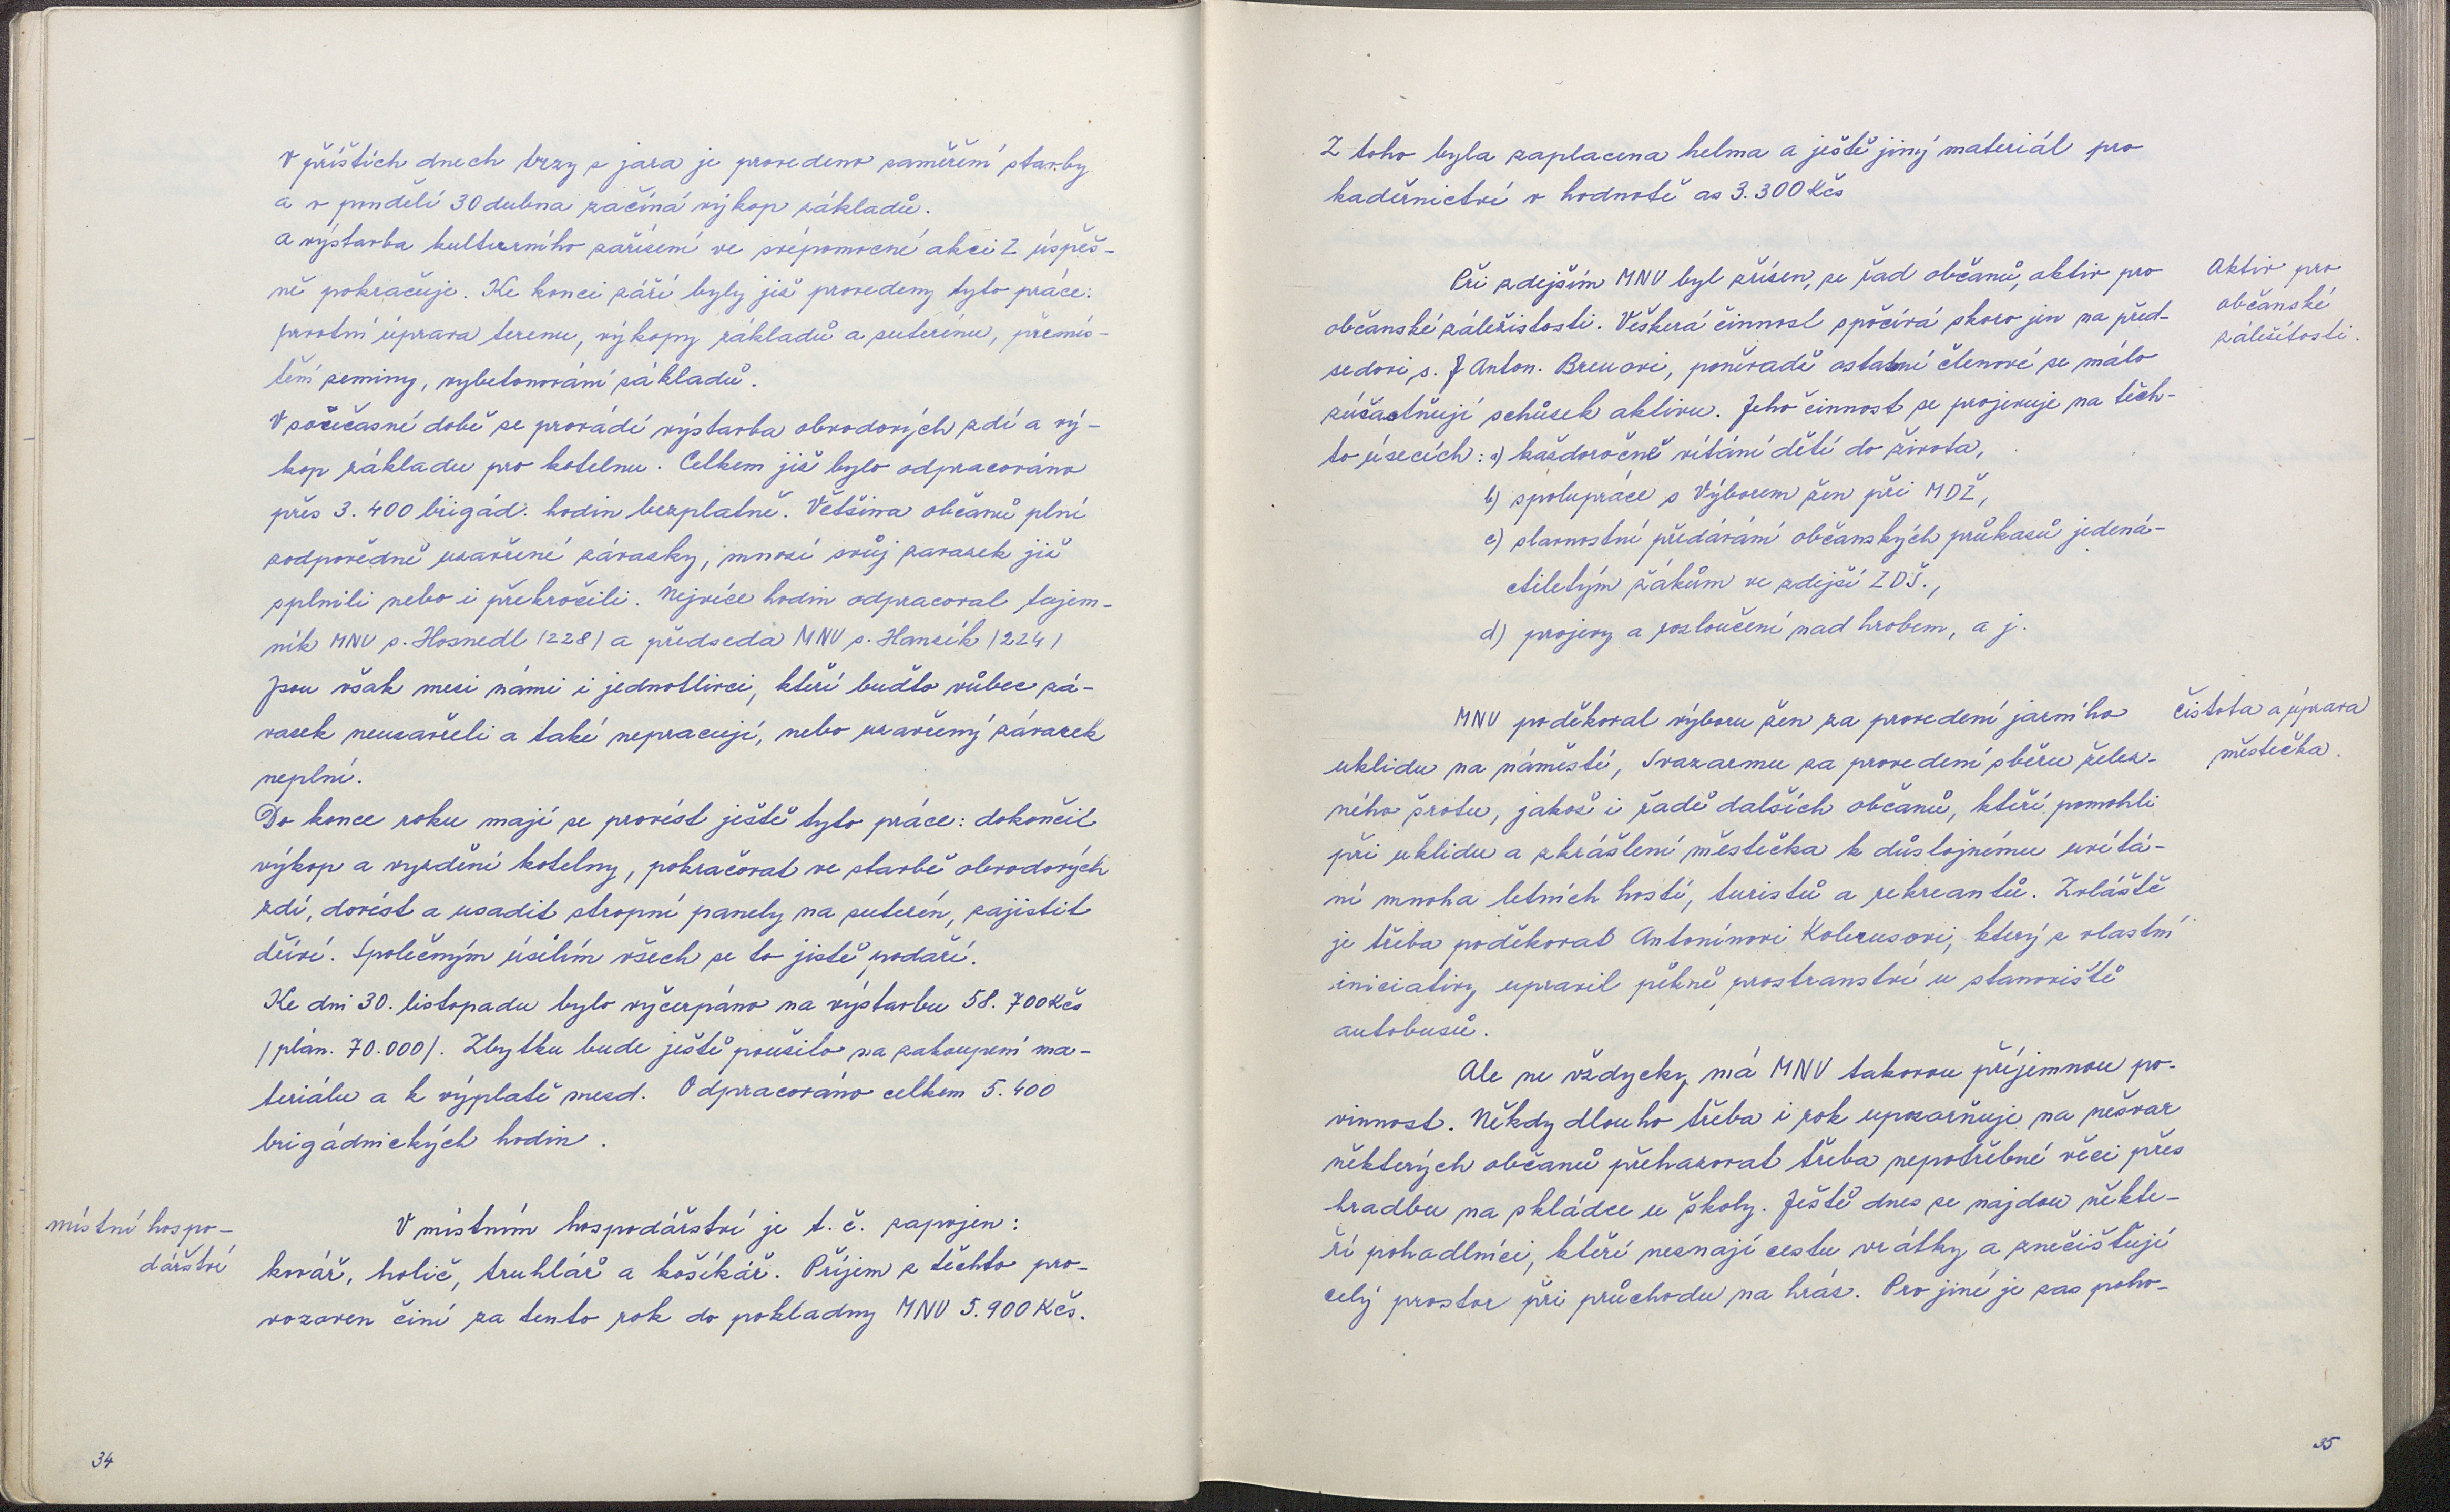 V příštích dnech brzy z jara je provedeno zaměření stavby
a v pondělí 30 dubna začíná výkop základů.
a výstavba kulturního zařízení ve svépomocné akci Z úspěš-
ně pokračuje. Ke konci září byly již provedeny tyto práce:
prvotní úprava terenu, výkopy základů a suterénu, přemís-
tění zeminy, vybetonování základů.
V sočičasné době se provádí výstavba obvodových zdí a vý-
kop základu pro kotelnu. Celkem již bylo odpracováno
přes 3.400 brigád. hodin bezplatně. Většina občanů plní
zodpovědně uzavřené závazky, mnozí svůj zavazek již
splnili nebo i překročili. Nejvíce hodin odpracoval tajem-
ník MNV s. Hosnedl /228/ a předseda MNV s. Hanzík /224/
Jsou však mezi námi i jednotlivci, kteří buďto vůbec zá-
vazek neuzavřeli a také nepracují, nebo uzavřený závazek
neplní.
Do konce roku mají se provést ještě tyto práce: dokončit
výkop a vyzdění kotelny, pokračovat ve stavbě obvodových
zdí, dovést a usadit stropní panely na suterén, zajistit
dříví. Společným úsilím všech se to jistě podaří.
Ke dni 30. listopadu bylo vyčerpáno na výstavbu 58.700 Kčs
/plán. 70.000/. Zbytku bude ještě použito na zakoupení ma-
teriálu a k výplatě mezd. Odpracováno celkem 5.400
brigádnických hodin.
místní hospo-
dářství
V místním hospodářství je t. č. zapojen:
kovář, holič, truhlář a košíkář. Příjem z těchto pro-
vozoven činí za tento rok do pokladny MNV 5.900 Kčs.
34
Z toho byla zaplacena helma a ještě jiný materiál pro
kadeřnictví v hodnotě as 3.300 Kčs
Aktiv pro
občanské
záležitosti.
Při zdejším MNV byl zřízen, ze řad občanů, aktiv pro
občanské záležitosti. Veškerá činnost spočívá skoro jen na před-
sedovi, s. J Anton. Breuovi, poněvadě ostatní členové se málo
zúčastňují schůzek aktivu. Jeho činnost se projevuje na těch-
to úsecích: a) každoročně vítání dětí do života,
b) spolupráce s Výborem žen při MDŽ,
c) slavnostní předávání občanských průkazů jedená-
ctiletým žákům ve zdejší ZDŠ.,
d) projevy a rozloučení nad hrobem, a j.
čistota a úprava
městečka.
MNV poděkoval výboru žen za provedení jarního
uklidu na náměstí, Svazarmu za provedení sběru želez-
ného šrotu, jakož i řadě dalších občanů, kteří pomohli
při uklidu a zkrášlení městečka k důstojnému uvítá-
ní mnoha letních hostí, turistů a rekreantů. Zvláště
je třeba poděkovat Antonínovi Kolerusovi, který z vlastní
iniciativy upravil pěkně prostranství u stanoviště
autobusů.
Ale ne vždycky má MNV takovou příjemnou po-
vinnost. Někdy dlouho třeba i rok upozarňuje na nešvar
některých občanů přehazovat třeba nepotřebné věci přes
hradbu na skládce u školy. Ještě dnes se najdou někte-
ří pohadlníci, kteří neznají cestu vrátky a znečišťují
celý prostor při průchodu na hráz. Pro jiné je zas poho-
35